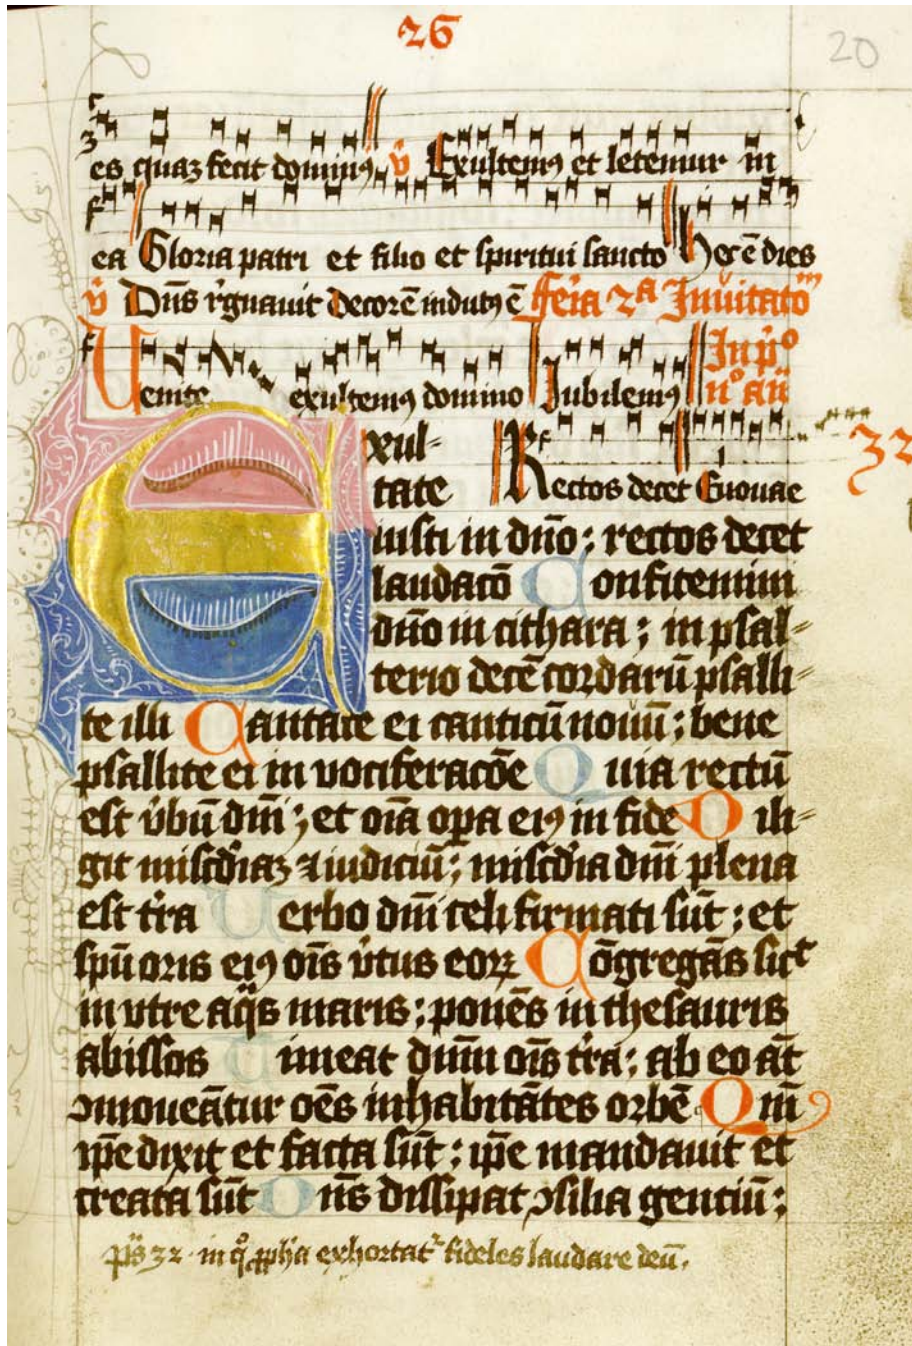 26
20
es quaz fecit dominꝰ v̄ Exultemꝰ et letemur in
ea Gloria patri et filio et spiritui sancto Hec ē dies
v̄ Dn̄s rͥgnauit decorē indutꝰ ē ffeͥia 2ᵃ Inuitatoᵐ
Uenite exultemꝰ domino Iubilemꝰ In pͥᵒ
nᵒ an̄
Exul-
tate Rectos decet Euouae
32
iusti in dn̄o : rectos decet
laudatō Confitemini
dn̄o in cithara ; in psal-
terio decē cordarū psalli-
te illi Cantate ei canticū nouū ; bene
psallite ei in vociferacōe Quia rectū
est v̓bū dn̄i ; et oīa oꝑa eiꝰ in fide Dili-
git mis̄cd̓iaz ⁊ iudiciū ; mis̄cd̓ia dn̄i plena
est tr̓a Uerbo dn̄i celi firmati sūt ; et
spū oris eiꝰ oīs v̓tus eoꝝ Cōgregās sicͭ
in vtre aq̄s maris ; ponēs in thesauris
abissos Timeat dn̄m oīs tr̓a ; ab eo āt
ꝯmoueātur oēs inhabitātes orbē Qm̄
ip̄e dixit et facta sūt ; ip̄e mandauit et
creata sūt Dn̄s dissipat ꝯsilia genciū ;
ps̄ 32 · in qͦ ꝓph̄a exhortatʳ fideles laudare deū .